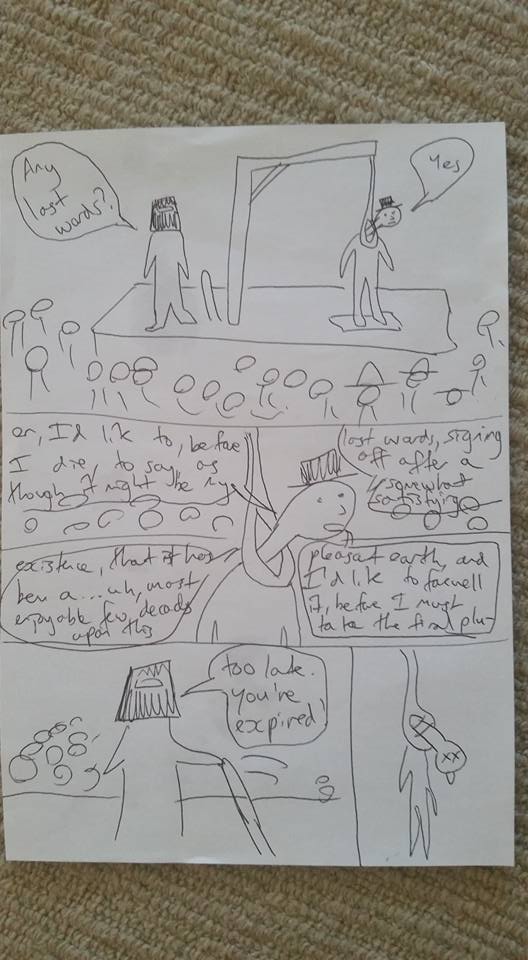 Any
last
words?
Yes
er, I'd like to, before
I die, to say, as
though it might be my
last words, signing
off after a
somewhat
satisfying
existence, that it has
been a... uh, most
enjoyable few, decads
upon this
pleasat earth, and
I'd like to farwell
it, before I must
take the final plu-
too late.
you're
expired!